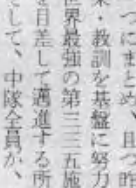 つにまとめ、且つ昨
業・教訓を基盤に努力
世界最強の第三三五施
を目差して邁進する所
そして、中隊全員が、